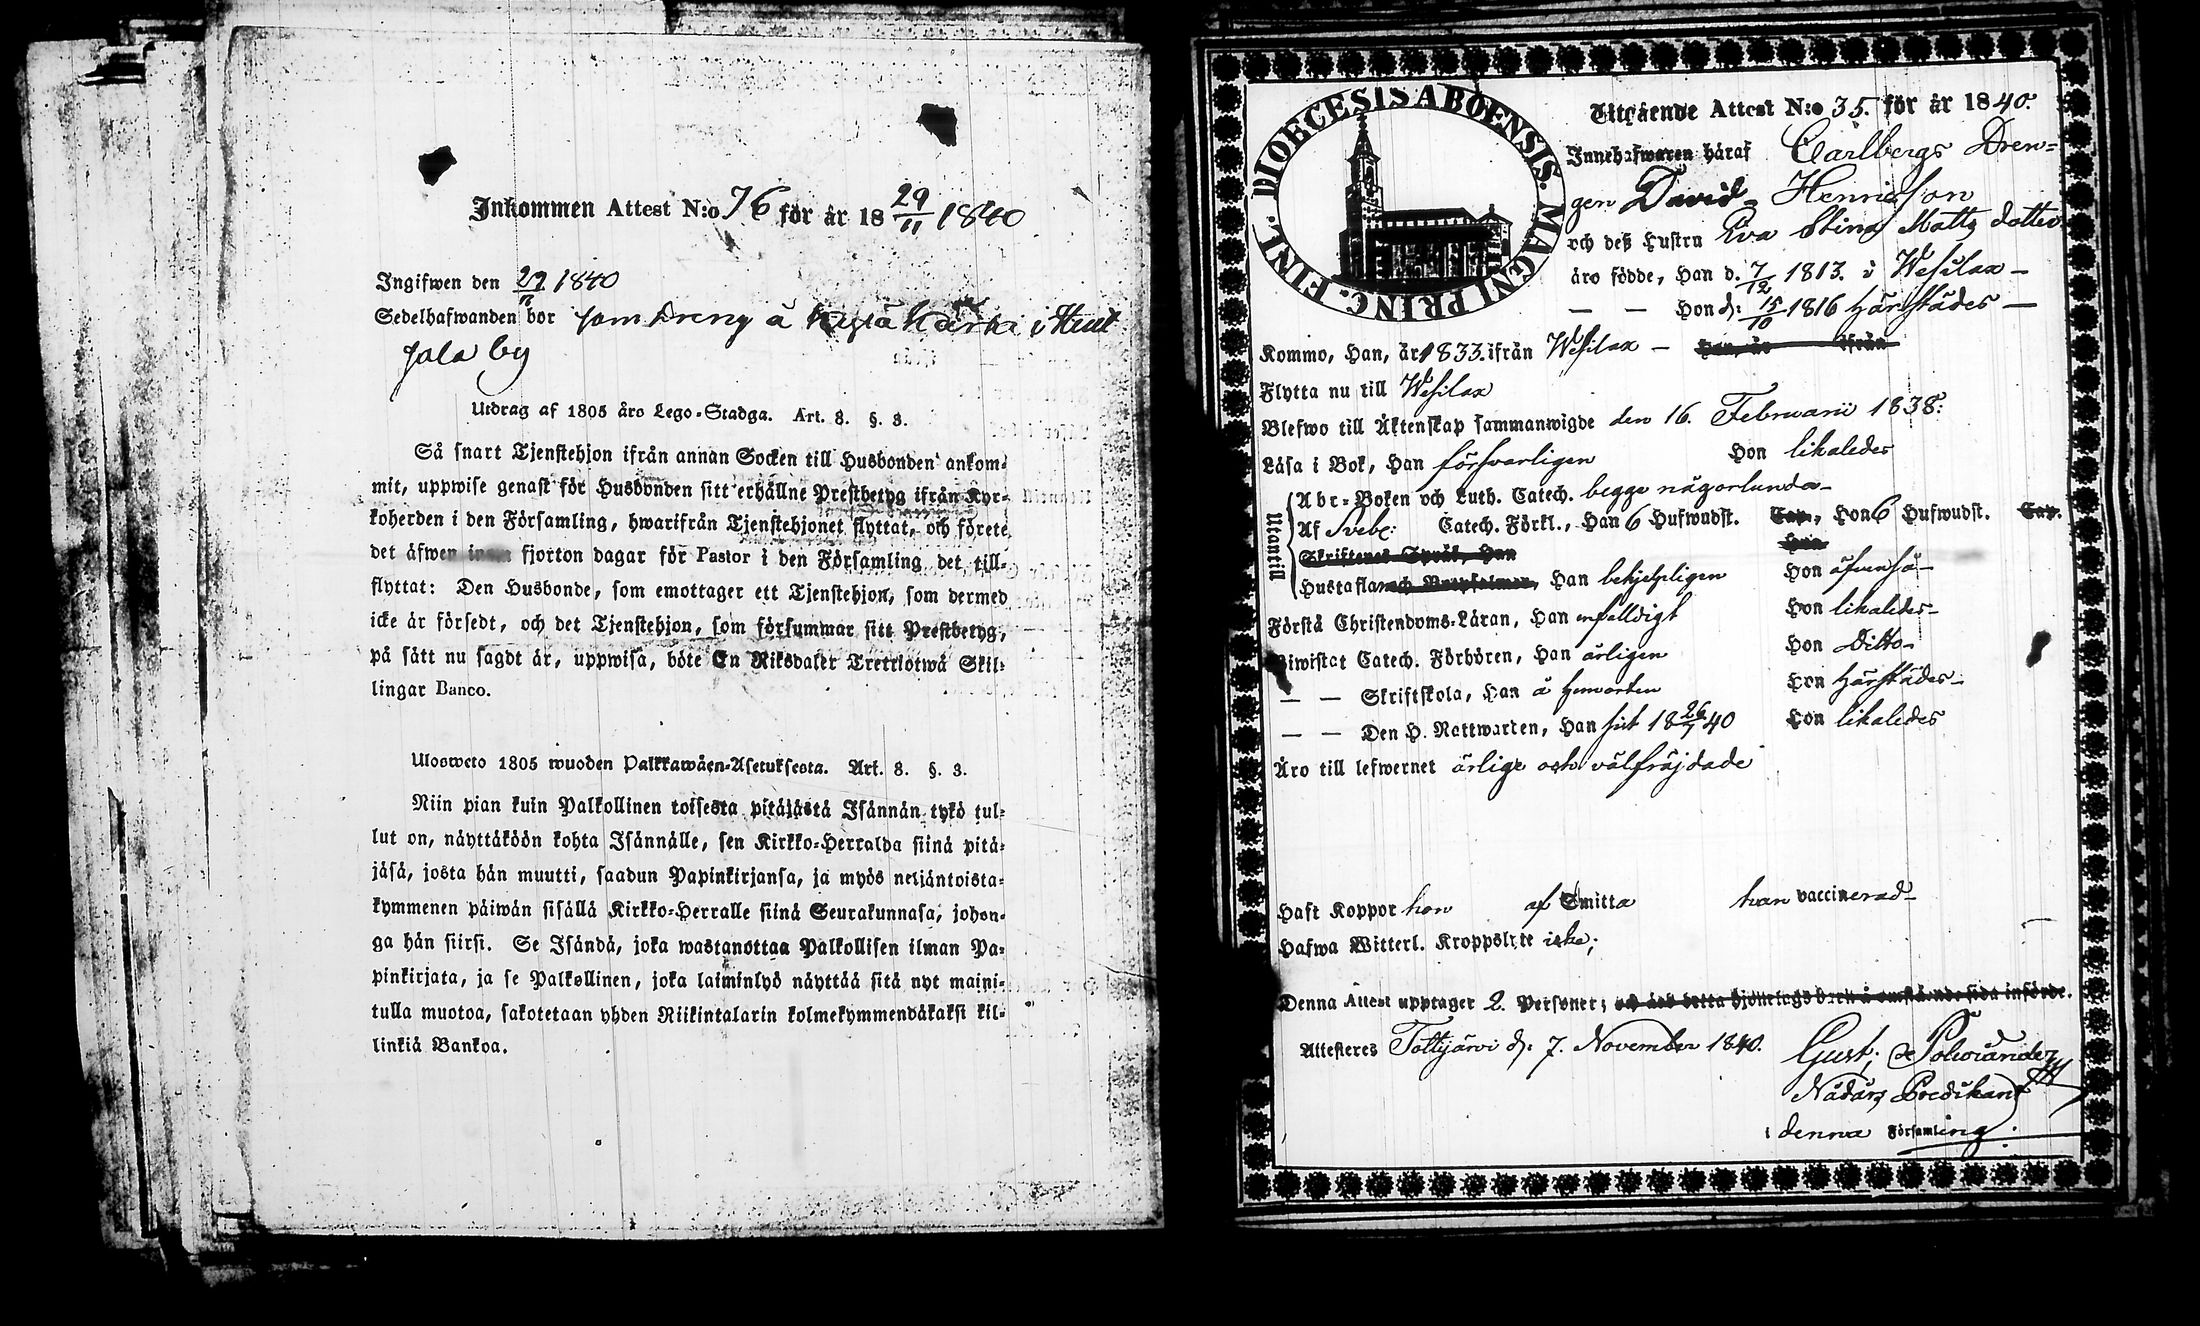 Inkommen Attest N:o 76 för år 18 29/11 1840
Ingifwen den 29/11 1840
Sedelhafwanden bor som Dreng å i Heut
jala by
Utdrag af 1805 års Lego-Stadga. Art. 8. §. 3.
Så snart Tjenstehjon ifrån annan Socken till Husbonden ankom-
mit, uppwise genast för Husbonden sitt erhållne Prestbetyg ifrån Kyr-
koherden i den Församling, hwarifrån Tjenstehjonet flyttat, och förete
det äfwen inom fjorton dagar för Pastor i den Församling det till-
flyttat: Den Husbonde, som emottager ett Tjenstehjon, som dermed
icke är försedt, och det Tjenstehjon, som försummar sitt Prestbetyg,
på sätt nu sagdt är, uppwisa, böte En Riksdaler Trettiotwå Skil-
lingar Banco.
Ulosweto 1805 wuoden Palkkawäen-Asetuksesta. Art. 8. §. 3.
Niin pian kuin Palkollinen toisesta pitäjästä Isännän tykö tul-
lut on, näyttäköön kohta Isännälle, sen Kirkko-Herralda siinä pitä-
jäsä, josta hän muutti, saadun Papinkirjansa, ja myös neljäntoista-
kymmenen päiwän sisällä Kirkko-Herralle siinä Seurakunnasa, johon-
ga hän siirsi. Se Isändä, joka wastanottaa Palkollisen ilman Pa-
pinkirjata, ja se Palkollinen, joka laiminlyö näyttää sitä nyt maini-
tulla muotoa, sakotetaan yhden Riikintalarin kolmekymmendäkaksi kil-
linkiä Bankoa.
DIOECESIS ABOENSIS. MAGNI PRINC. FINL.
Utgående Attest N:o 35. för år 1840.
Innehafwaren häraf Carlbergs Dren-
gen David Henricsson
och deß Hustru Eva Stina Matts dotter
äro födde, Han d. 7/12 1813. i Wesilax —
— — Hon d: 15/10 1816 härstädes —
Kommo, Han, år 1833. ifrån Wesilax — Hon, år ifrån
Flytta nu till Wesilax
Blefwo till Äktenskap sammanwigde den 16. Februarii 1838:
Läsa i Bok, Han försvarligen Hon likaledes
Utantill
Abc-Boken och Luth. Catech. begge någorlunda
Af Sveb: Catech. Förkl., Han 6 Hufwudst. Cap., Hon 6 Hufwudst. Cap.
Skriftenes Språk, Han Hon
Hustaflan och Botpsalmen, Han behjelpligen Hon äfvenså
Förstå Christendoms-Läran, Han enfalldigt Hon likaledes
Biwistat Catech. Förhören, Han årligen Hon Ditto
— — Skriftskola, Han å hemorten Hon härstädes
— — Den H. Nattwarden, Han sist 18 26/7 40 Hon likaledes
Äro till lefwernet ärlige och välfräjdade
Haft Koppor hon af Smitta han vaccinerad
Hafwa Witterl. Kroppslyte icke;
Denna Attest upptager 2. Personer; och äro detta hjonelags barn å omstående sida införde.
Attesteres Tottijärvi d: 7. November 1840. Gust: Polviander
Nådårs Predikant
i denna Församling.